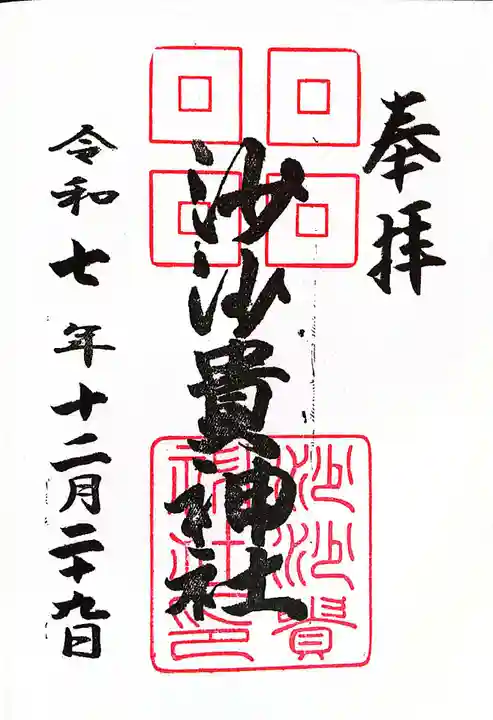 奉拝
沙沙貴神社
沙沙貴
神社之印
令和七年十二月二十九日